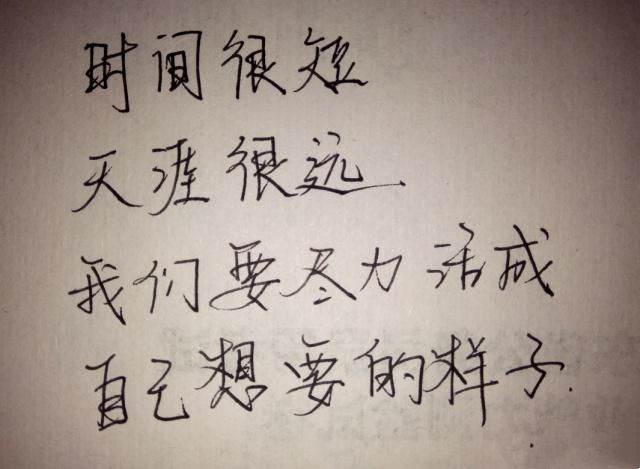 时间很短
天涯很远
我们要尽力活成
自己想要的样子.